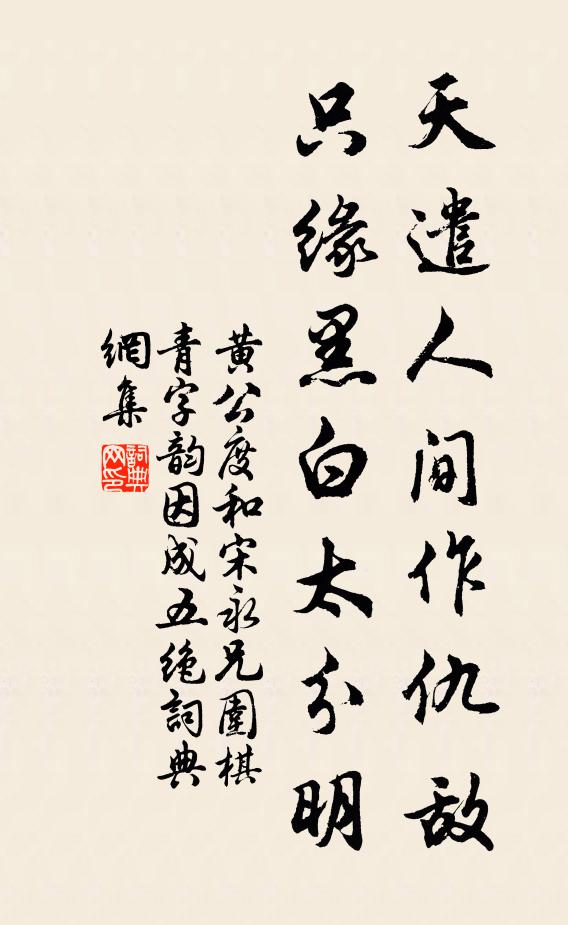 天遣人间作仇敌
只缘黑白太分明
黄公度和宋永兄围棋
青字韵因成五绝词典
網集
詞典
网印